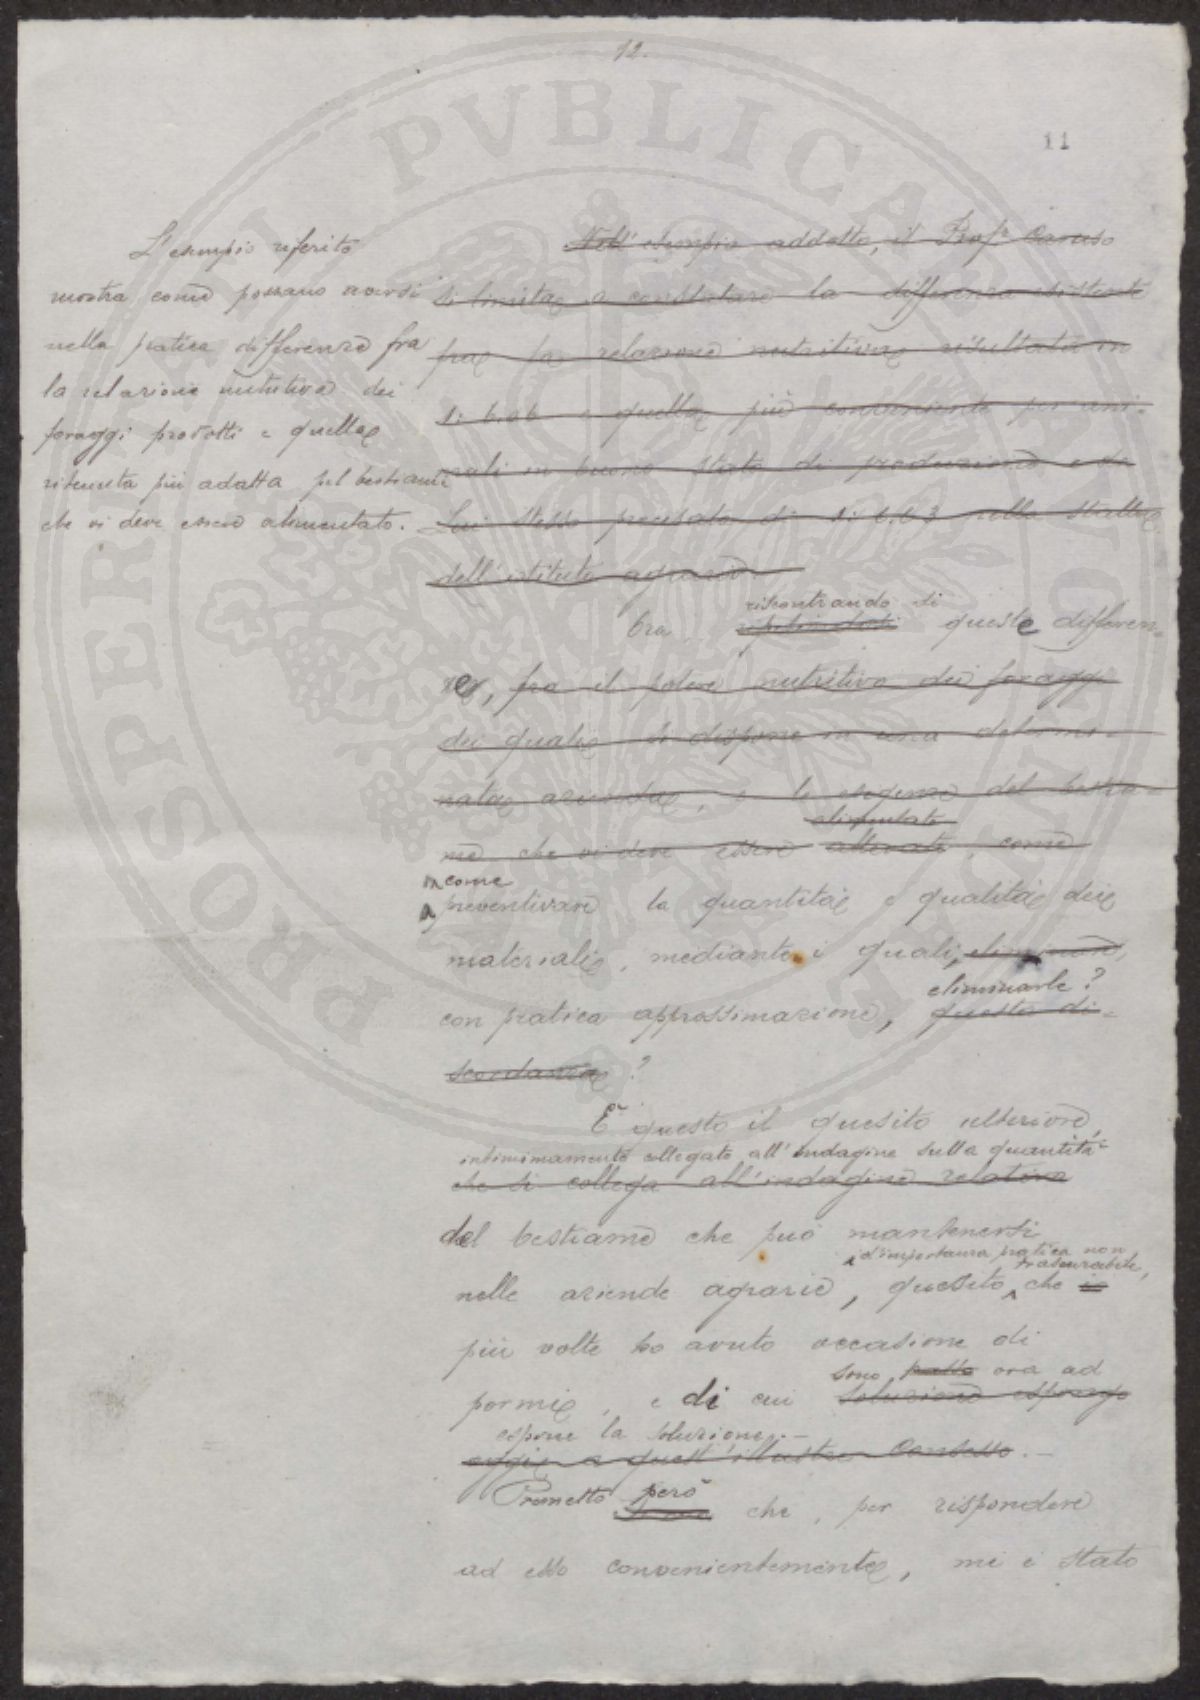 12.
11
PROSPERITATI PVBLICAE
L'esempio riferito
mostra come possano aversi
nella pratica differenze fra
la relazione nutritiva dei
foraggi prodotti e quella
ritenuta più adatta pel bestiame
che vi deve essere alimentato.
Nell'esempio addotto, il Prof.e Caruso
si limita a constatare la differenza esistente
fra la relazione nutritiva risultata in
1: 6.06 e quella più conveniente per ani-
mali in buono stato di produzione e da
Lui stesso precisata di 1: 6.63 nella stalla
dell'istituto agrario
riscontrando di
Ora queste differen-
ze, fra il potere nutritivo dei foraggi
dei quali si dispone in una determi-
nata azienda, e le esigenze del bestia-
alimentato
me che vi deve essere allevato, come
come
preventivare la quantità e qualità dei
materiali, mediante i quali, eliminare,
eliminarle?
con pratica approssimazione, questa di-
scordanza?
È questo il quesito ulteriore,
intimimamente collegato all'indagine sulla quantità
che si collega all'indagine relativa
del bestiame che può mantenersi
d'importanza pratica non
trascurabile,
nelle aziende agrarie, quesito che io
più volte ho avuto occasione di
sono passo ora ad
pormi, e di cui soluzione espongo
esporre la soluzione.-
oggi a quest'illustre Consesso.-
Premetto però
che, per rispondere
ad esso convenientemente, mi è stato